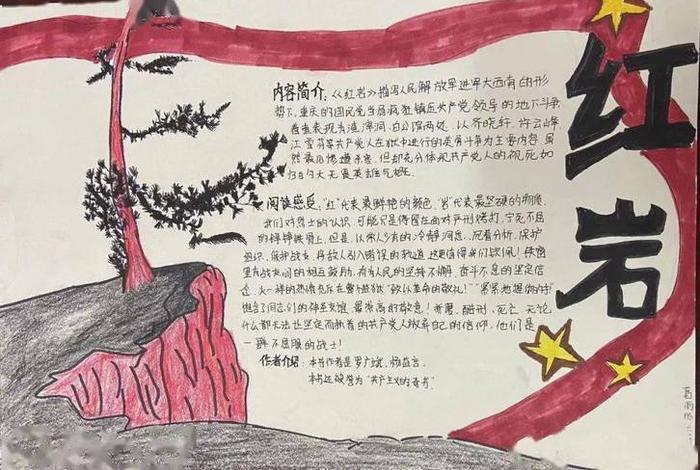 红岩
内容简介：《红岩》描写人民解放军进军大西南的形
势下，重庆的国民党当局疯狂镇压共产党领导的地下斗争
着重表现渣滓洞、白公馆两处，以齐晓轩、许云峰
江雪芬等共产党人在狱中进行的英勇斗争为主要内容，虽
然最后惨遭杀害，但却充分体现共产党人的视死如
归的大无畏英雄气概。
阅读感受："红"代表最鲜艳的颜色，"岩"代表最坚硬的物质，
我们对烈士的认识，可能只是停留在面对严刑拷打，宁死不屈
的铮铮铁骨上，但是，以常人少有的冷静洞悉、分析，保护
组织，保护战友，再敌人引入错误的轨道，这更值得我们钦佩！
里有战友间的相互鼓励，有有人民的坚持不懈，奋斗不息的坚定信
念，火一样的热情包在"致以革命的敬礼！""紧紧地握你的手"
饱含了同志们的伟至友谊，最崇高的敬意！酷刑、死亡，无论
什么都无法让坚定而执着的共产党人放弃自己的信仰，他们是
一群不屈服的战士！
作者介绍：本书作者是罗广斌、杨益言。
本书还被誉为"共产主义的奇书"